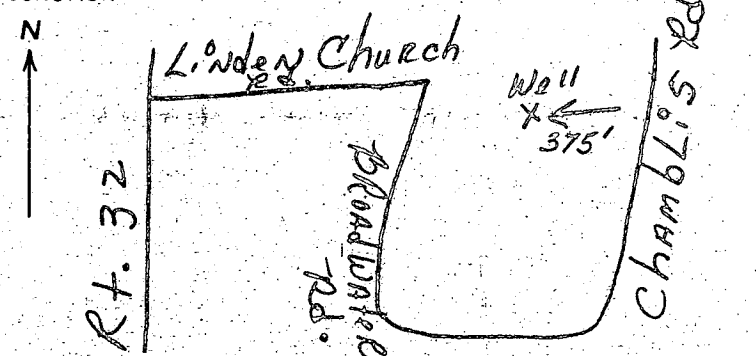 N
Linden Church
Rd.
Well
X
375'
Rt. 32
Broadwater
Rd.
Chamblis Rd